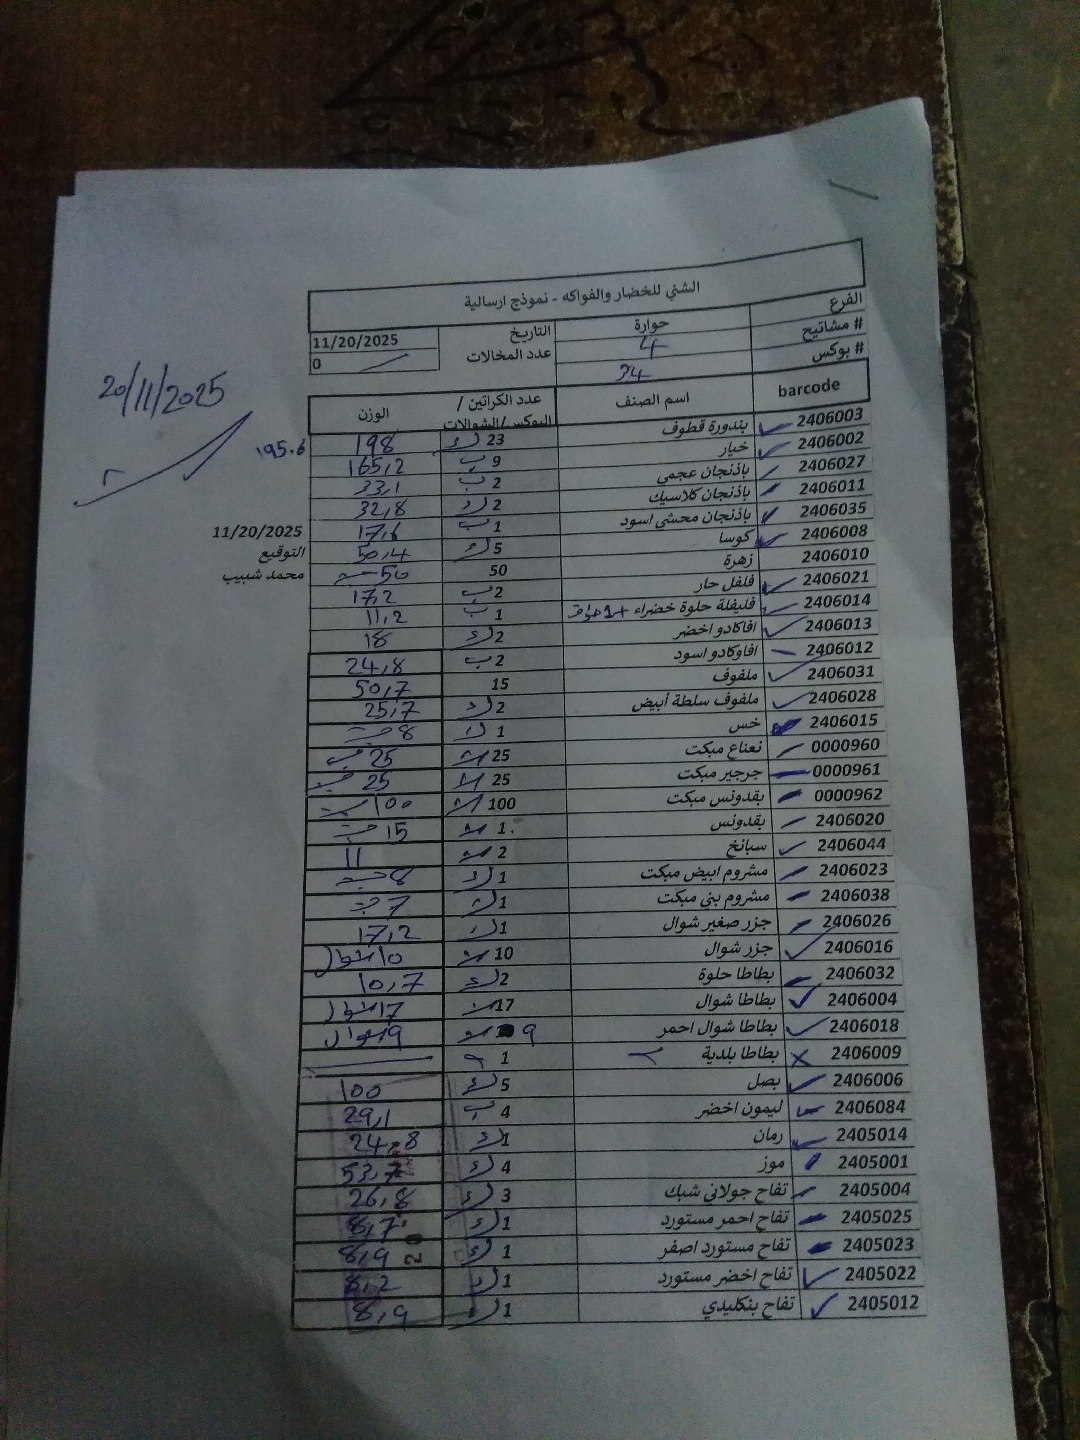 الشني للخضار والفواكه - نموذج ارسالية
الفرع حوارة التاريخ 11/20/2025
# مشاتيح 4 عدد المخالات 0
# بوكس 24
20/11/2025
barcode اسم الصنف عدد الكراتين / البوكس/الشوالات الوزن
2406003 بندورة قطوف 23 ك 198 195.6
2406002 خيار 9 ب 165,2
2406027 باذنجان عجمي 2 ب 33,1
2406011 باذنجان كلاسيك 2 ك 32,8
2406035 باذنجان محشي اسود 1 ب 17,6
11/20/2025
2406008 كوسا 5 ك 50,4
التوقيع
2406010 زهرة 50 50 حبة
محمد شبيب
2406021 فلفل حار 2 ب 17,2
2406014 فليفلة حلوة خضراء +1 1 ب 11,2
2406013 افاكادو اخضر 2 ك 18
2406012 افاوكادو اسود 2 ب 24,8
2406031 ملفوف 15 50,7
2406028 ملفوف سلطة أبيض 2 ك 25,7
2406015 خس 1 ك 8 حبة
0000960 نعناع مبكت 25 25
0000961 جرجير مبكت 25 25 حبة
0000962 بقدونس مبكت 100 100 حبة
2406020 بقدونس 1. 15 حبة
2406044 سبانخ 2 11
2406023 مشروم ابيض مبكت 1 ك 8 حبة
2406038 مشروم بني مبكت 1 ك 7 حبة
2406026 جزر صغير شوال 1 ك 17,2
2406016 جزر شوال 10 10 شوال
2406032 بطاطا حلوة 2 ك 10,7
2406004 بطاطا شوال 17 17 شوال
2406018 بطاطا شوال احمر 9 9 شوال
2406009 بطاطا بلدية 1
2406006 بصل 5 ك 100
2406084 ليمون اخضر 4 ب 29,1
2405014 رمان 1 ك 24,8
2405001 موز 4 ك 53,7
2405004 تفاح جولاني شبك 3 ك 26,8
2405025 تفاح احمر مستورد 1 ك 8,7
2405023 تفاح مستورد اصفر 1 ك 8,9
2405022 تفاح اخضر مستورد 1 ك 8,2
2405012 تفاح بنكليدي 1 ك 8,9